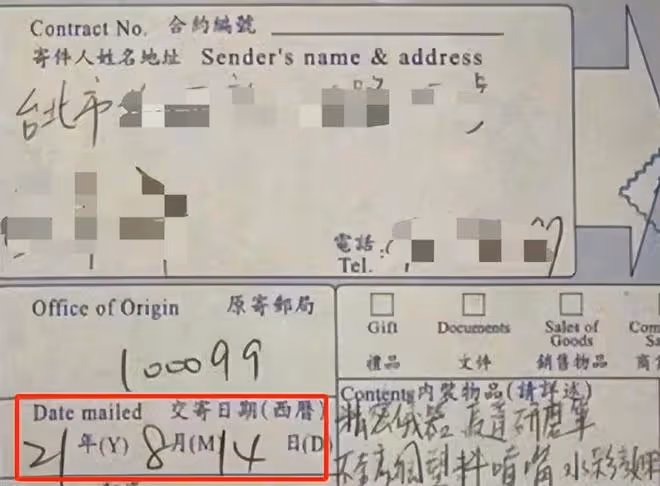 Contract No. 合約編號
寄件人姓名地址 Sender's name & address
台北市
電話:
Tel.
Office of Origin 原寄郵局
100099
Date mailed 交寄日期(西曆)
21年(Y) 8月(M) 14日(D)
Gift Documents Sales of Goods
禮品 文件 銷售物品
Contents內裝物品(請詳述)
精密儀器
塑料噴嘴 水彩顏料